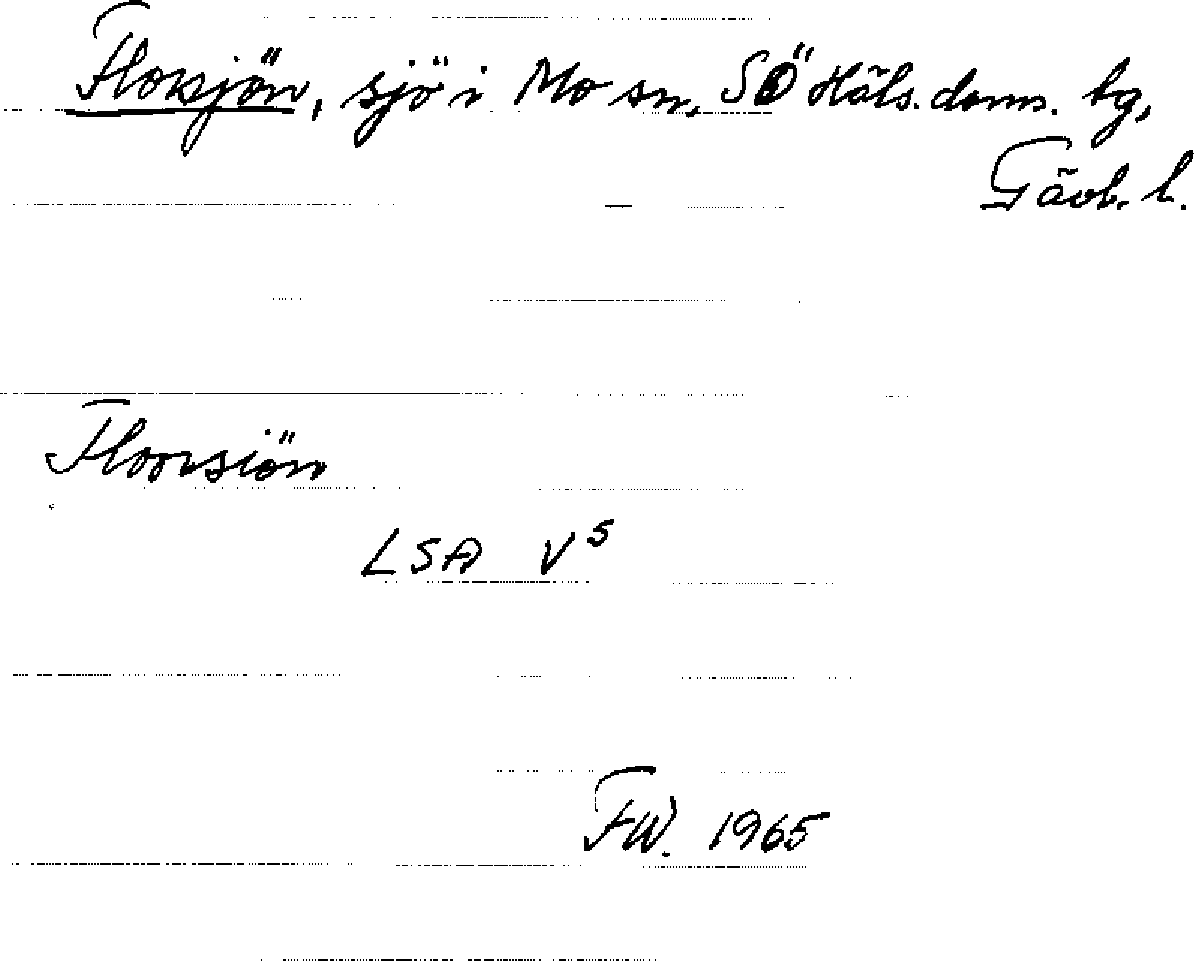 Florsjön, sjö i Mo sn, SÖ Häls. doms. bg,
Gävb. l.
Floorsiön
LSA V⁵
FW. 1965